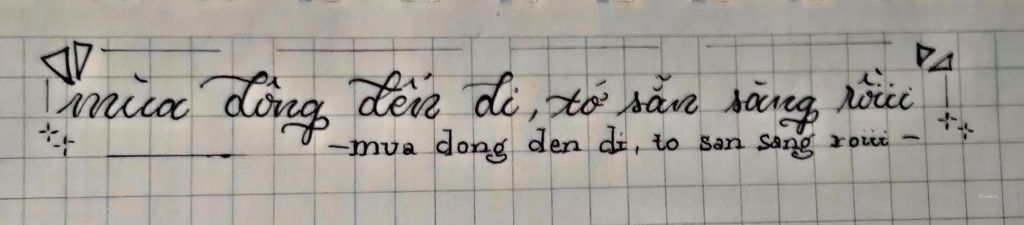 mùa đông đến đi, tớ sẵn sàng rồiii
-mua dong den di, to san sang roiii -